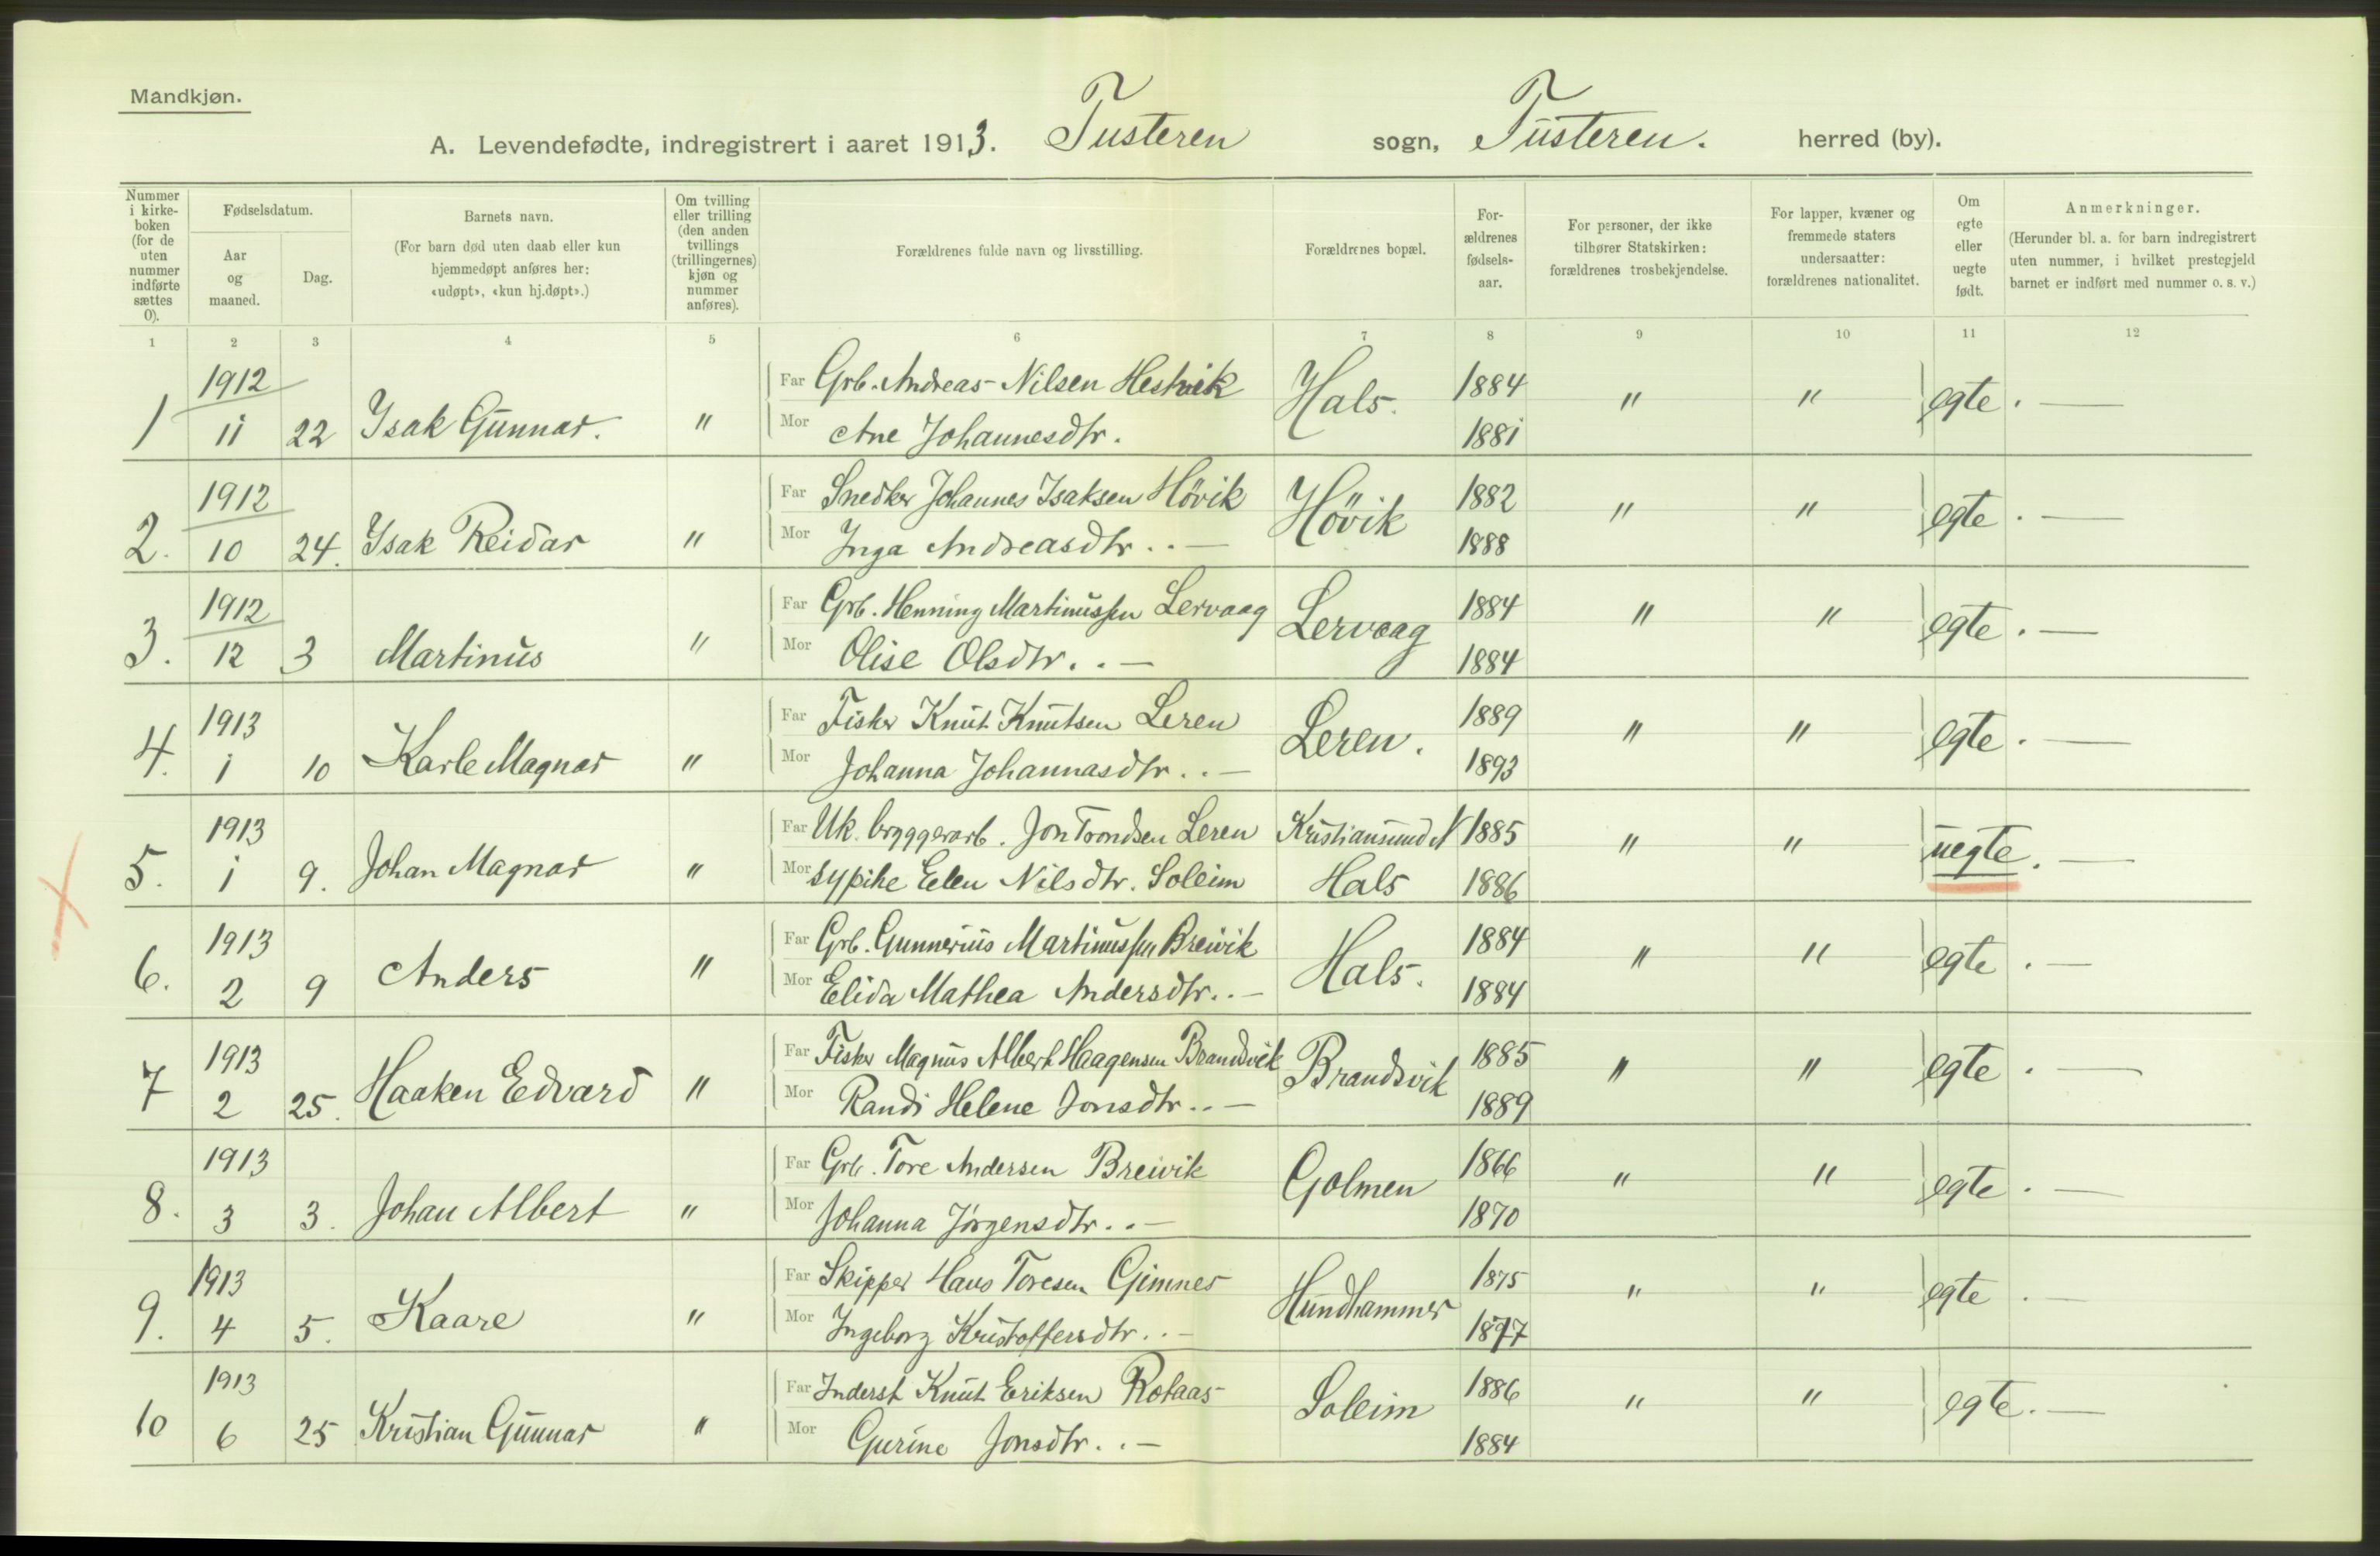 Mandkjøn.
A. Levendefødte, indregistrert i aaret 1913. Tusteren sogn, Tusteren. herred (by).
Nummer i kirke-boken (for de uten nummer indførte sættes 0).
Fødselsdatum.
Aar og maaned.
Dag.
Barnets navn.
(For barn død uten daab eller kun hjemmedøpt anføres her: «udøpt», «kun hj.døpt».)
Om tvilling eller trilling (den anden tvillings (trillingernes) kjøn og nummer anføres).
Forældrenes fulde navn og livsstilling.
Forældrenes bopæl.
For-ældrenes fødsels-aar.
For personer, der ikke tilhører Statskirken: forældrenes trosbekjendelse.
For lapper, kvæner og fremmede staters undersaatter: forældrenes nationalitet.
Om egte eller uegte født.
Anmerkninger.
(Herunder bl. a. for barn indregistrert uten nummer, i hvilket prestegjeld barnet er indført med nummer o. s. v.)
1 2 3 4 5 6 7 8 9 10 11 12
1912 Far Grb. Andreas Nilsen Hestvik Hals. 1884 " " egte. —
1 11 22 Isak Gunnar. " Mor Ane Johannesdtr. 1881
1912 Far Snedker Johannes Isaksen Hövik Hövik 1882 " " egte. —
2. 10 24. Isak Reidar " Mor Inga Andreasdtr. . — 1888
1912 Far Grb. Henning Martinussen Lervaag Lervaag 1884 " " egte. —
3. 12 3 Martinus " Mor Olise Olsdtr. . — 1884
1913 Far Fisker Knut Knutsen Leren Leren. 1889 " " egte. —
4. 1 10 Karle Magnar " Mor Johanna Johannasdtr. . — 1893
1913 Far Uk. bryggerarb. Jon Trondsen Leren Kristiansund N 1885 " " uegte. —
5. 1 9. Johan Magnar " Mor sypike Elen Nilsdtr. Soleim Hals 1886
1913 Far Grb. Gunnerius Martinussen Breivik Hals. 1884 " " egte. —
6. 2 9 Anders " Mor Elida Mathea Andersdtr. . — 1884
1913 Far Fisker Magnus Albert Haagensen Brandsvik Brandsvik 1885 " " egte. —
7 2 25. Haaken Edvard " Mor Randi Helene Jonsdtr. . — 1889
1913 Far Grb. Tore Andersen Breivik Golmen 1866 " " egte. —
8. 3 3. Johan Albert " Mor Johanna Jörgensdtr. . — 1870
1913 Far Skipper Hans Toresen Gimnes Hundhammer 1875 " " egte. —
9. 4 5. Kaare " Mor Ingeborg Kristoffersdtr. . — 1877
1913 Far Inderst Knut Eriksen Rotaas Soleim 1886 " " egte. —
10 6 25 Kristian Gunnar " Mor Gurine Jonsdtr. . — 1884